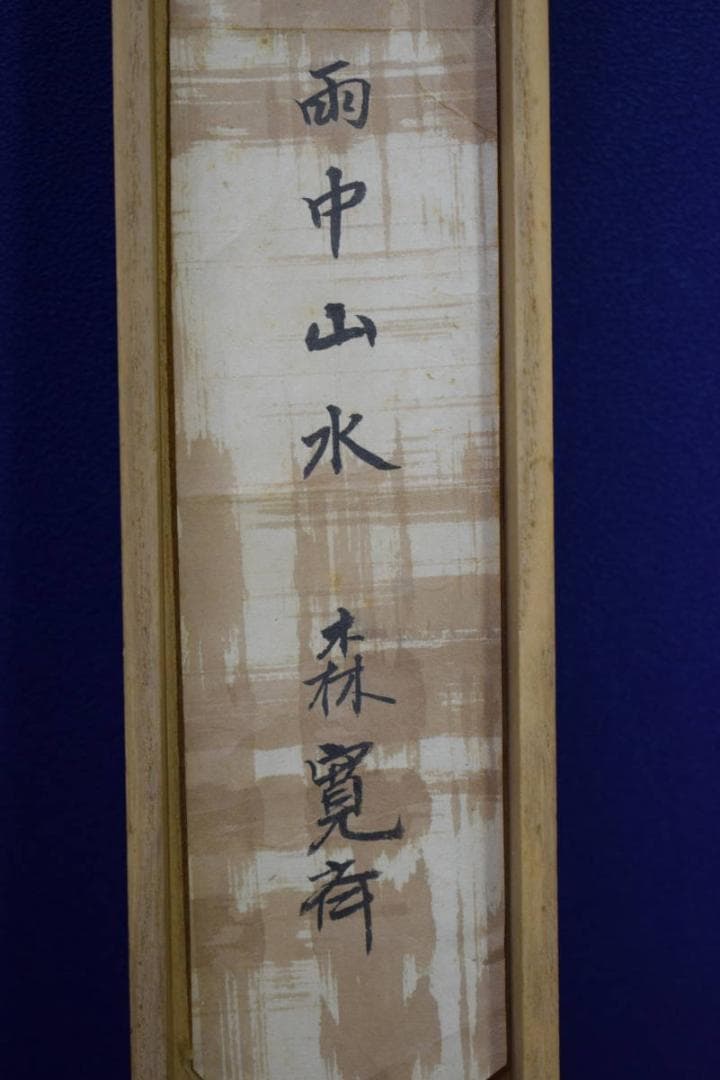 雨中山水 森寛斎